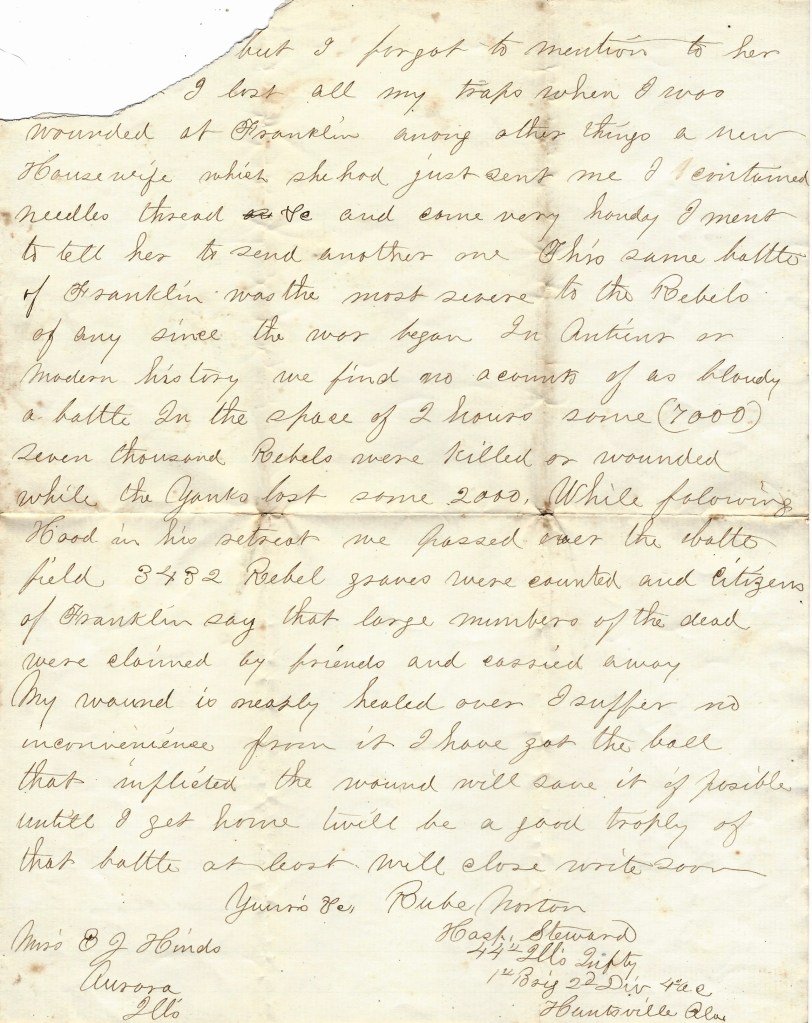 but I forgot to mention to her
I lost all my traps when I was
wounded at Franklin among other things a new
Housewife which she had just sent me I contained
needles thread &c and come very handy I ment
to tell her to send another one This same battle
of Franklin was the most severe to the Rebels
of any since the war began In Antient or
modern history we find no acounts of as bloody
a battle In the space of 2 hours some (7000)
seven thousand Rebels were killed or wounded
while the Yanks lost some 2000. While folowing
Hood in his retreat we passed over the battle
field 3432 Rebel graves were counted and citizens
of Franklin say that large numbers of the dead
were claimed by friends and carried away
My wound is nearly healed over I suffer no
inconveniense from it I have got the ball
that inflicted the wound will save it if posible
untill I get home twill be a good trophy of
that battle at least will close write soon
Yours &c, Rube Norton
Hosp. Steward
44th Ills Infty
1st Brig 2d Div 4th a c
Huntsville Ala
Miss E J Hinds
Aurora
Ills